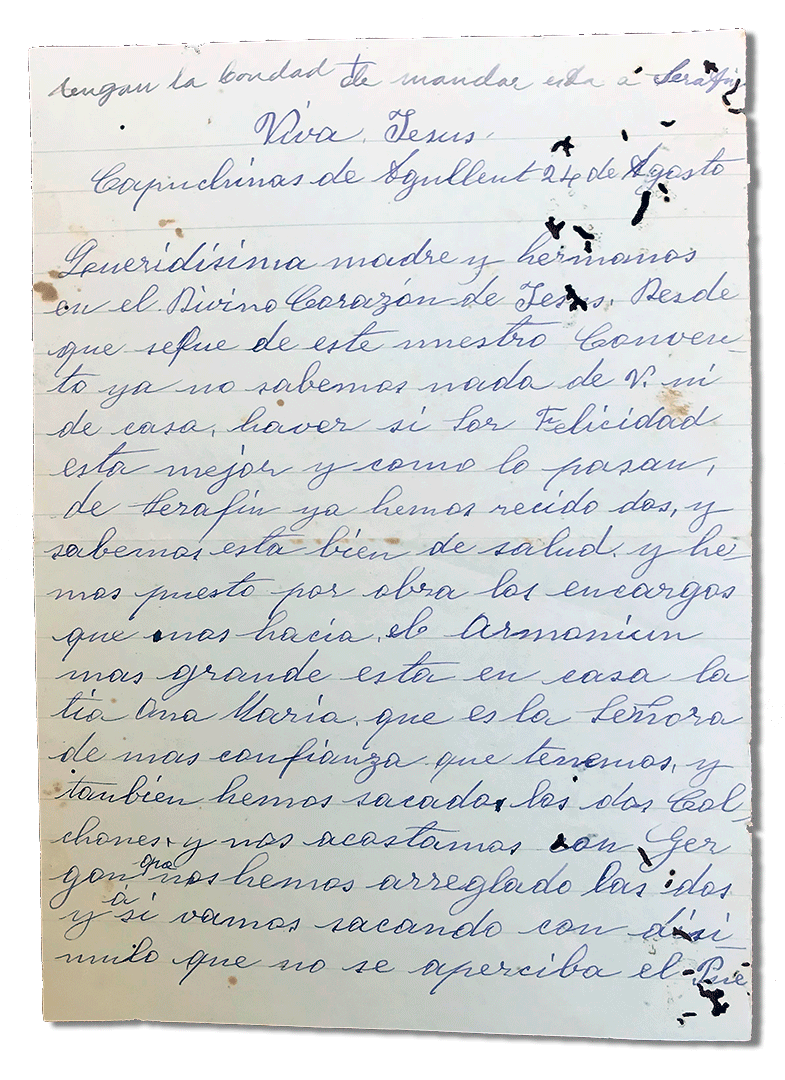 tengan la bondad de mandar esta á Serafin
Viva Jesus.
Capuchinas de Agullent 24 de Agosto
Queridísima madre y hermanos
en el Divino Corazón de Jesus. Desde
que se fue de este nuestro Conven-
to ya no sabemos nada de V. ni
de casa, haver si Sor Felicidad
esta mejor y como lo pasan,
de Serafín ya hemos recido dos, y
sabemos esta bien de salud. y he-
mos puesto por obra los encargos
que nos hacia, el Armoniun
mas grande esta en casa la
tía Ana María, que es la Señora
de mas confianza que tenemos, y
tanbién hemos sacado los dos Col-
chones, y nos acostamos con Ger
gon que nos hemos arreglado las dos
y á si vamos sacando con disi-
mulo que no se aperciba el Pue